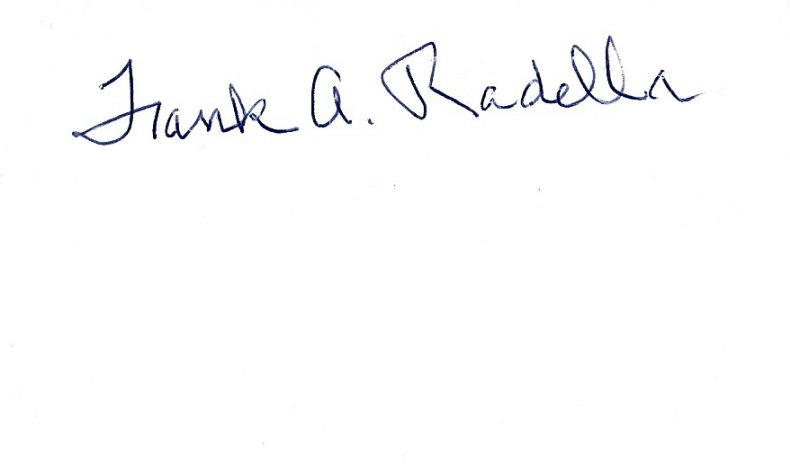 Frank A. Radella